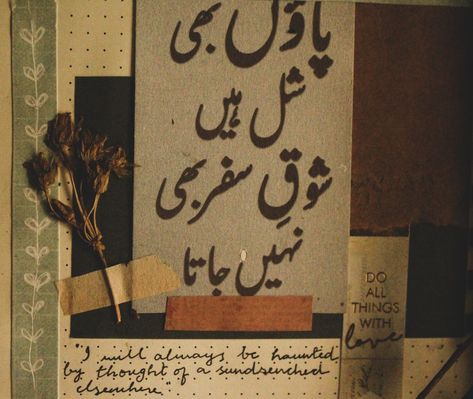 پاؤں بھی
شل ہیں
شوقِ سفر بھی
نہیں جاتا
DO
ALL
THINGS
WITH
love
"I will always be haunted
by thought of a sundrenched
elsewhere".